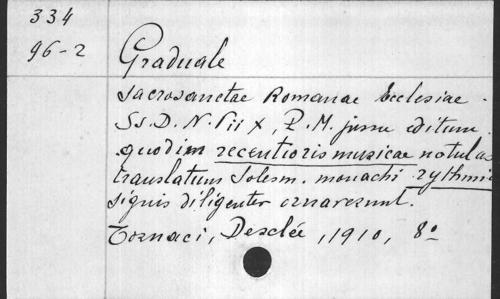 334
96-2
Graduale
sacrosanctae Romanae Ecclesiae.
Ss. D. N. Pii X, P. M. jussu editum
quodim recentioris musicae notulas
translatum Solesm. monachi rythmic
signis diligenter ornaverunt.
Tornaci, Desclée, 1910, 8º